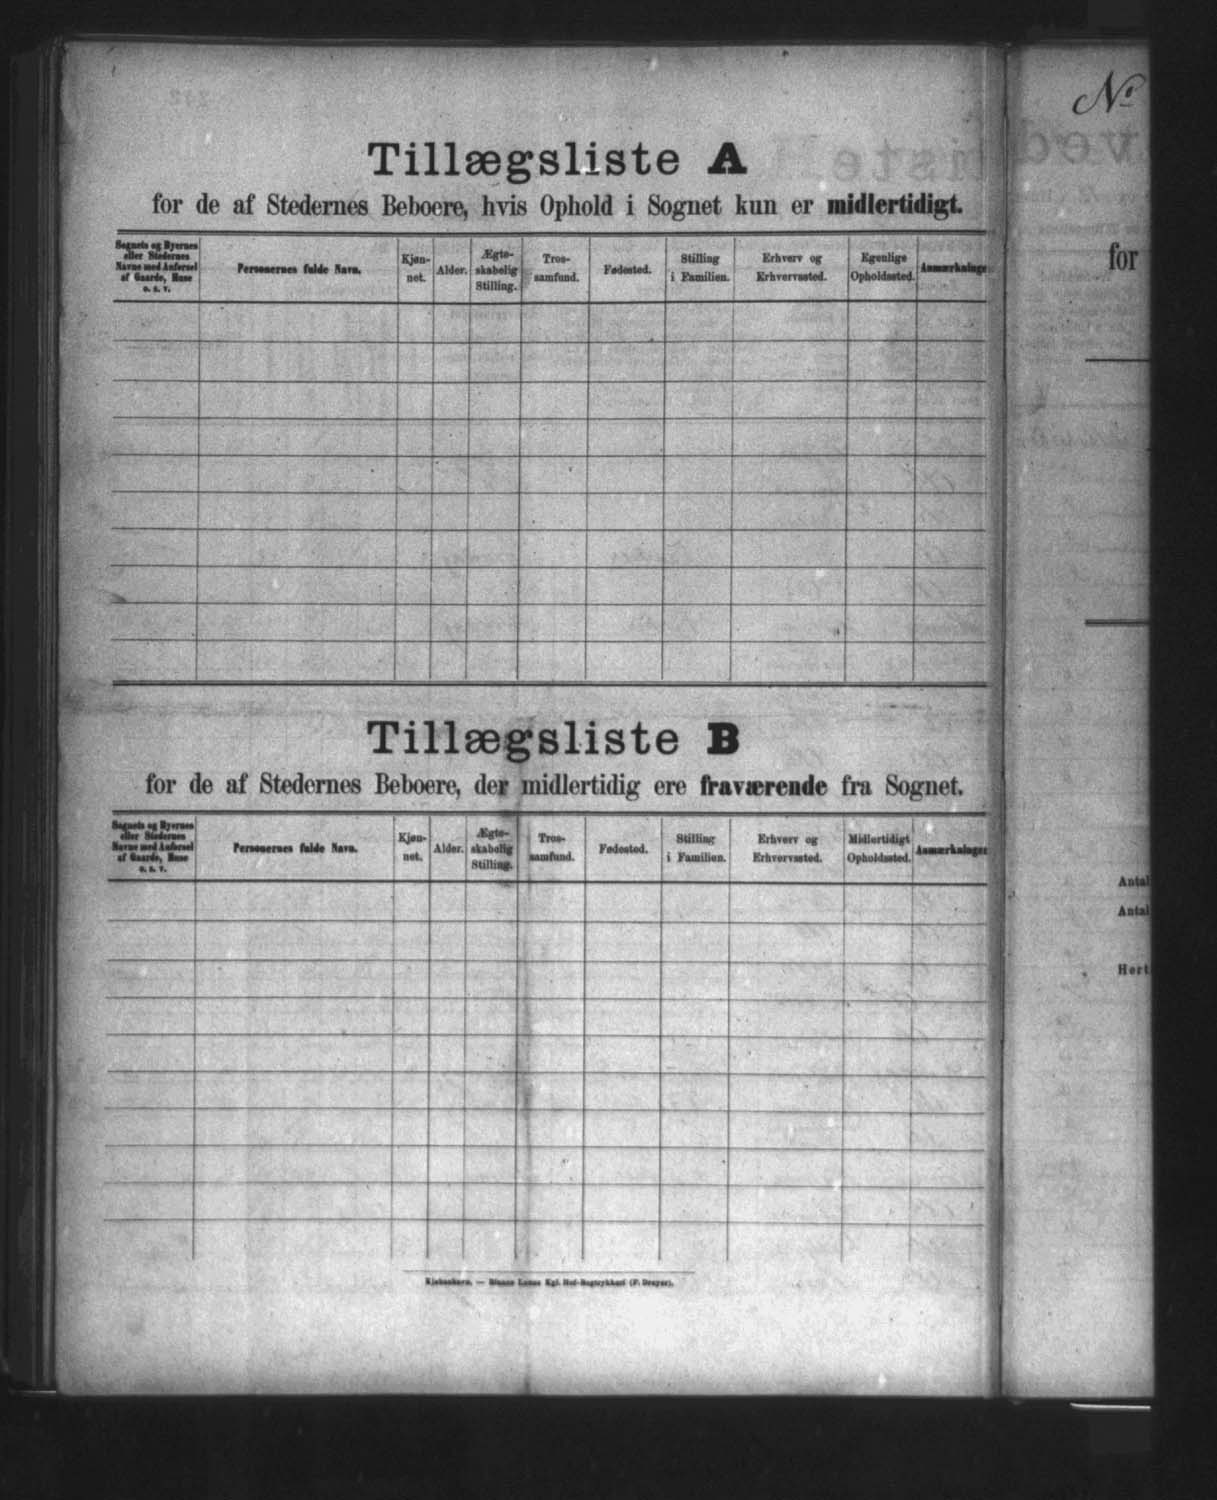 Tillægsliste A
for de af Stedernes Beboere, hvis Ophold i Sognet kun er midlertidigt.
Sognets og Byernes eller Stedernes Navne med Anførsel af Gaarde, Huse o. s. v.
Personernes fulde Navn.
Kjøn-
net.
Alder.
Ægte-
skabelig
Stilling.
Tros-
samfund.
Fødested.
Stilling
i Familien.
Erhverv og
Erhvervssted.
Egenlige
Opholdssted.
Anmærkninger
Tillægsliste B
for de af Stedernes Beboere, der midlertidig ere fraværende fra Sognet.
Sognets og Byernes
eller Stedernes
Navne med Anførsel
af Gaarde, Huse
o. s. v.
Personernes fulde Navn.
Kjøn-
net.
Alder.
Ægte-
skabelig
Stilling.
Tros-
samfund.
Fødested.
Stilling
i Familien.
Erhverv og
Erhvervssted.
Midlertidigt
Opholdssted.
Anmærkninger
Kjøbenhavn. — Bianco Lunos Kgl. Hof-Bogtrykkeri (F. Dreyer).
No
for
Antal
Antal
Hert